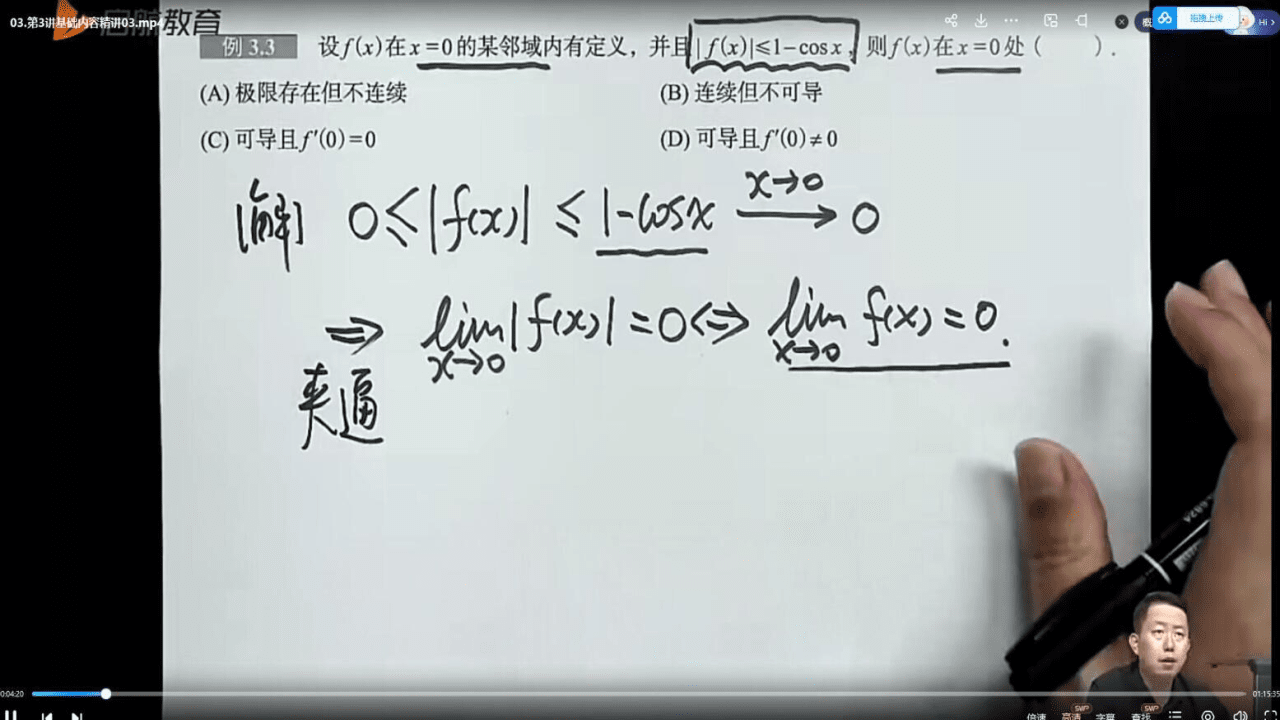 03.第3讲基础内容精讲03.mp4
启航教育
拖拽上传
Hi
例 3.3 设f(x)在x=0的某邻域内有定义，并且|f(x)|≤1-cosx，则f(x)在x=0处（ ）.
(A) 极限存在但不连续 (B) 连续但不可导
(C) 可导且f′(0)=0 (D) 可导且f′(0)≠0
[解] 0≤|f(x)|≤1-cosx x→0 → 0
⇒ lim x→0 |f(x)|=0 ⇔ lim x→0 f(x)=0.
夹逼
0:04:20 01:15:35
倍速 高清 字幕 查找
SVIP SVIP